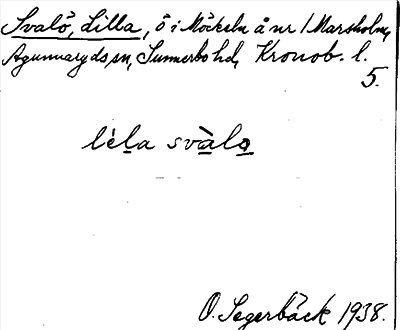 Svalö, Lilla, ö i Möckeln å nr 1 Marsholm,
Agunnaryds sn, Sunnerbo hd, Kronob. l.
5.
lèla svàlo
O. Segerbäck 1938.